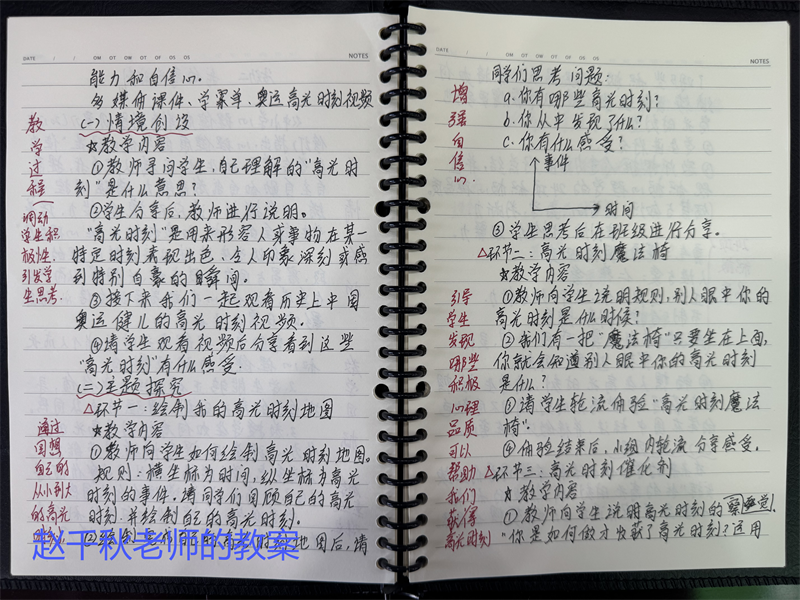 DATE / / OM OT OW OT OF OS OS NOTES
能力和自信心。
多媒体课件、学案单、奥运高光时刻视频
教学过程
(一)情境创设
☆教学内容
①教师寻问学生,自己理解的“高光时
刻”是什么意思?
②学生分享后,教师进行说明。
调动学生积极性,引发学生思考.
“高光时刻”是用来形容人或事物在某一
特定时刻表现出色、令人印象深刻或感
到特别自豪的瞬间。
③接下来我们一起观看历史上中国
奥运健儿的高光时刻视频。
④请学生观看视频后分享看到这些
“高光时刻”有什么感受.
(二)主题探究
△环节一:绘制我的高光时刻地图
☆教学内容
通过回想自己的从小到大的高光
①教师向学生如何绘制高光时刻地图。
规则:横坐标为时间,纵坐标为高光
时刻的事件。请同学们回顾自己的高光
时刻.并绘制自己的高光时刻。
地图后,请
赵千秋老师的教案
DATE / / OM OT OW OT OF OS OS NOTES
同学们思考问题:
增强自信心.
a.你有哪些高光时刻?
b.你从中发现了什么?
c.你有什么感受?
事件
时间
③学生思考后在班级进行分享。
△环节二:高光时刻魔法椅
☆教学内容
引导学生发现哪些积极心理品质可以帮助我们获得高光时刻
①教师向学生说明规则,别人眼中你的
高光时刻是什么时候?
②我们有一把“魔法椅”只要坐在上面,
你就会知道别人眼中你的高光时刻
是什么?
③请学生轮流体验“高光时刻魔法
椅”.
④体验结束后,小组内轮流分享感受。
△环节三:高光时刻催化剂
☆教学内容
①教师向学生说明高光时刻的
“你是如何做才收获了高光时刻?运用